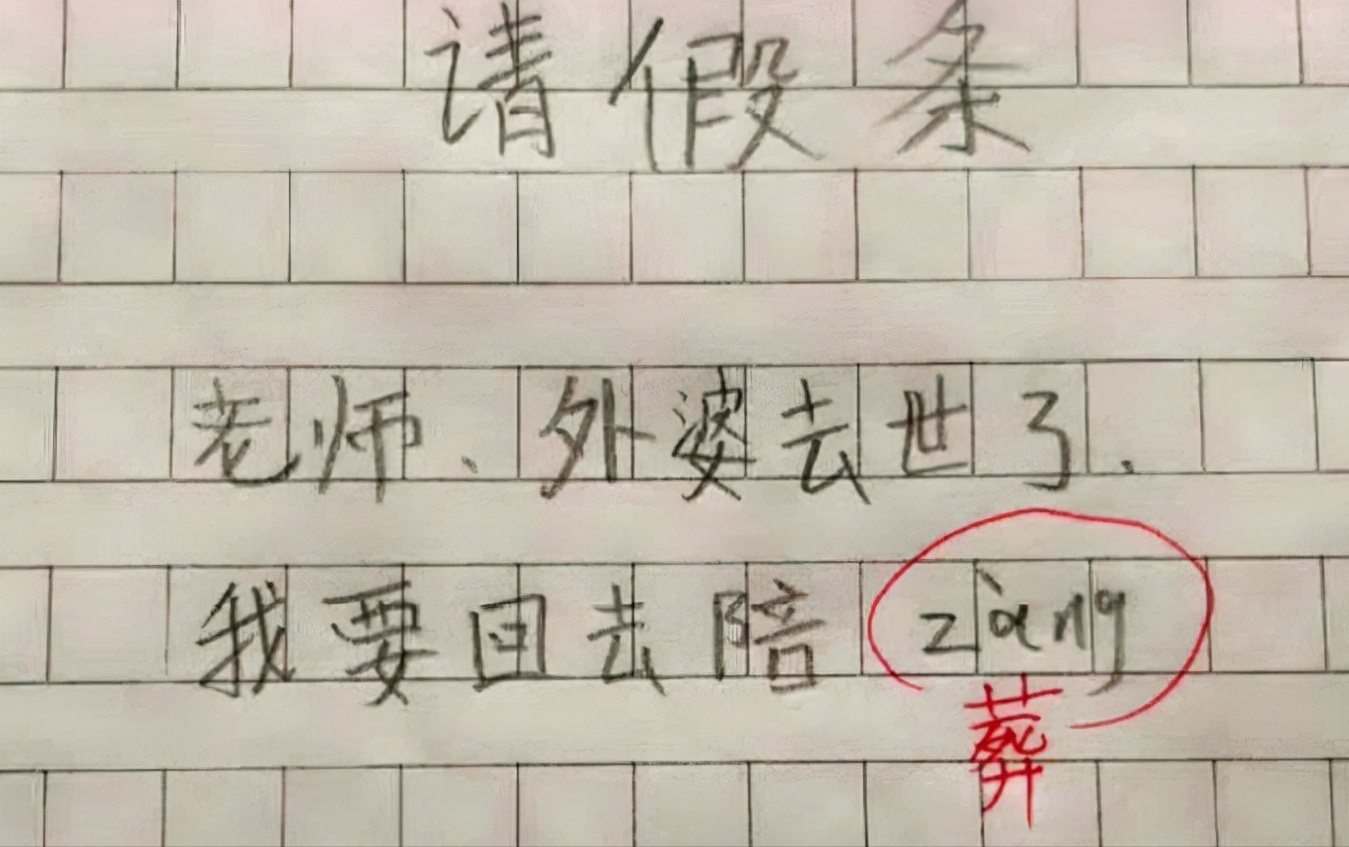 请假条
老师、外婆去世了.
我要回去陪zàng
葬